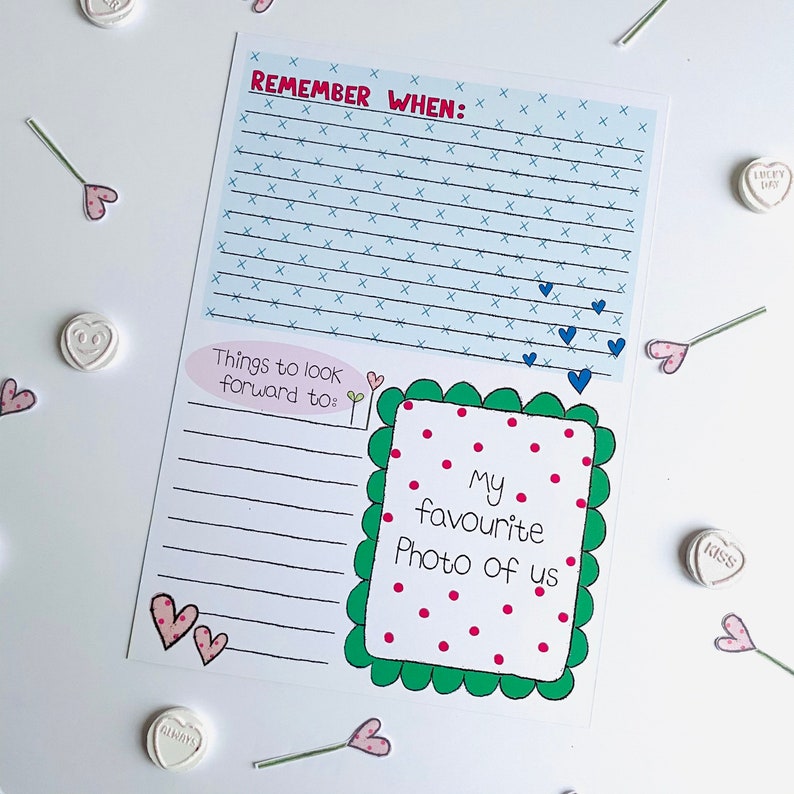 REMEMBER WHEN:
Things to look
forward to:
My
favourite
Photo of us
LUCKY
DAY
KISS
ALWAYS